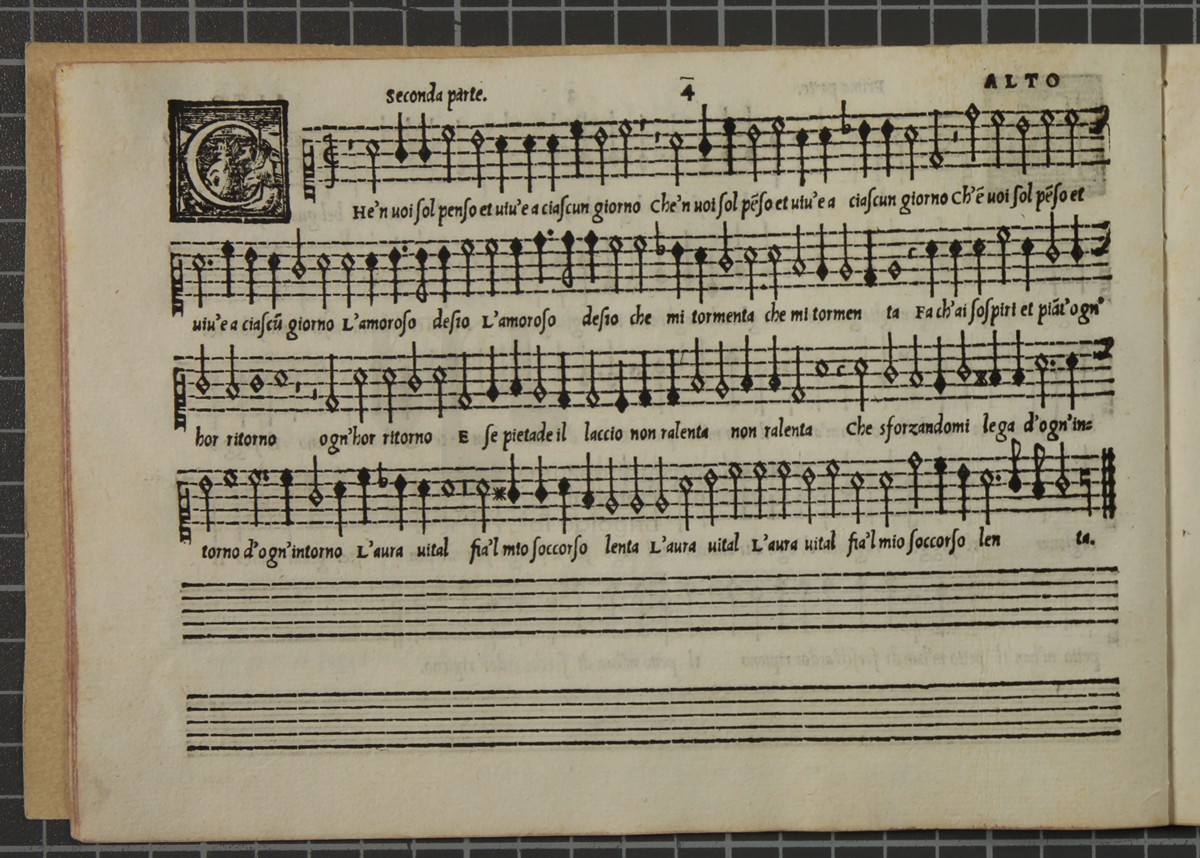 Seconda parte. 4 ALTO
CHe'n uoi sol penso et uiu'e a ciascun giorno Che'n uoi sol pẽso et uiu'e a ciascun giorno Ch'ẽ uoi sol pẽso et
uiu'e a ciascũ giorno L'amoroso desio L'amoroso desio che mi tormenta che mi tormen ta Fa ch'ai sospiri et piãt'ogn'
hor ritorno ogn'hor ritorno E se pietade il laccio non ralenta non ralenta Che sforzandomi lega d'ogn'in=
torno d'ogn'intorno L'aura uital fia'l mio soccorso lenta L'aura uital L'aura uital fia'l mio soccorso len ta.